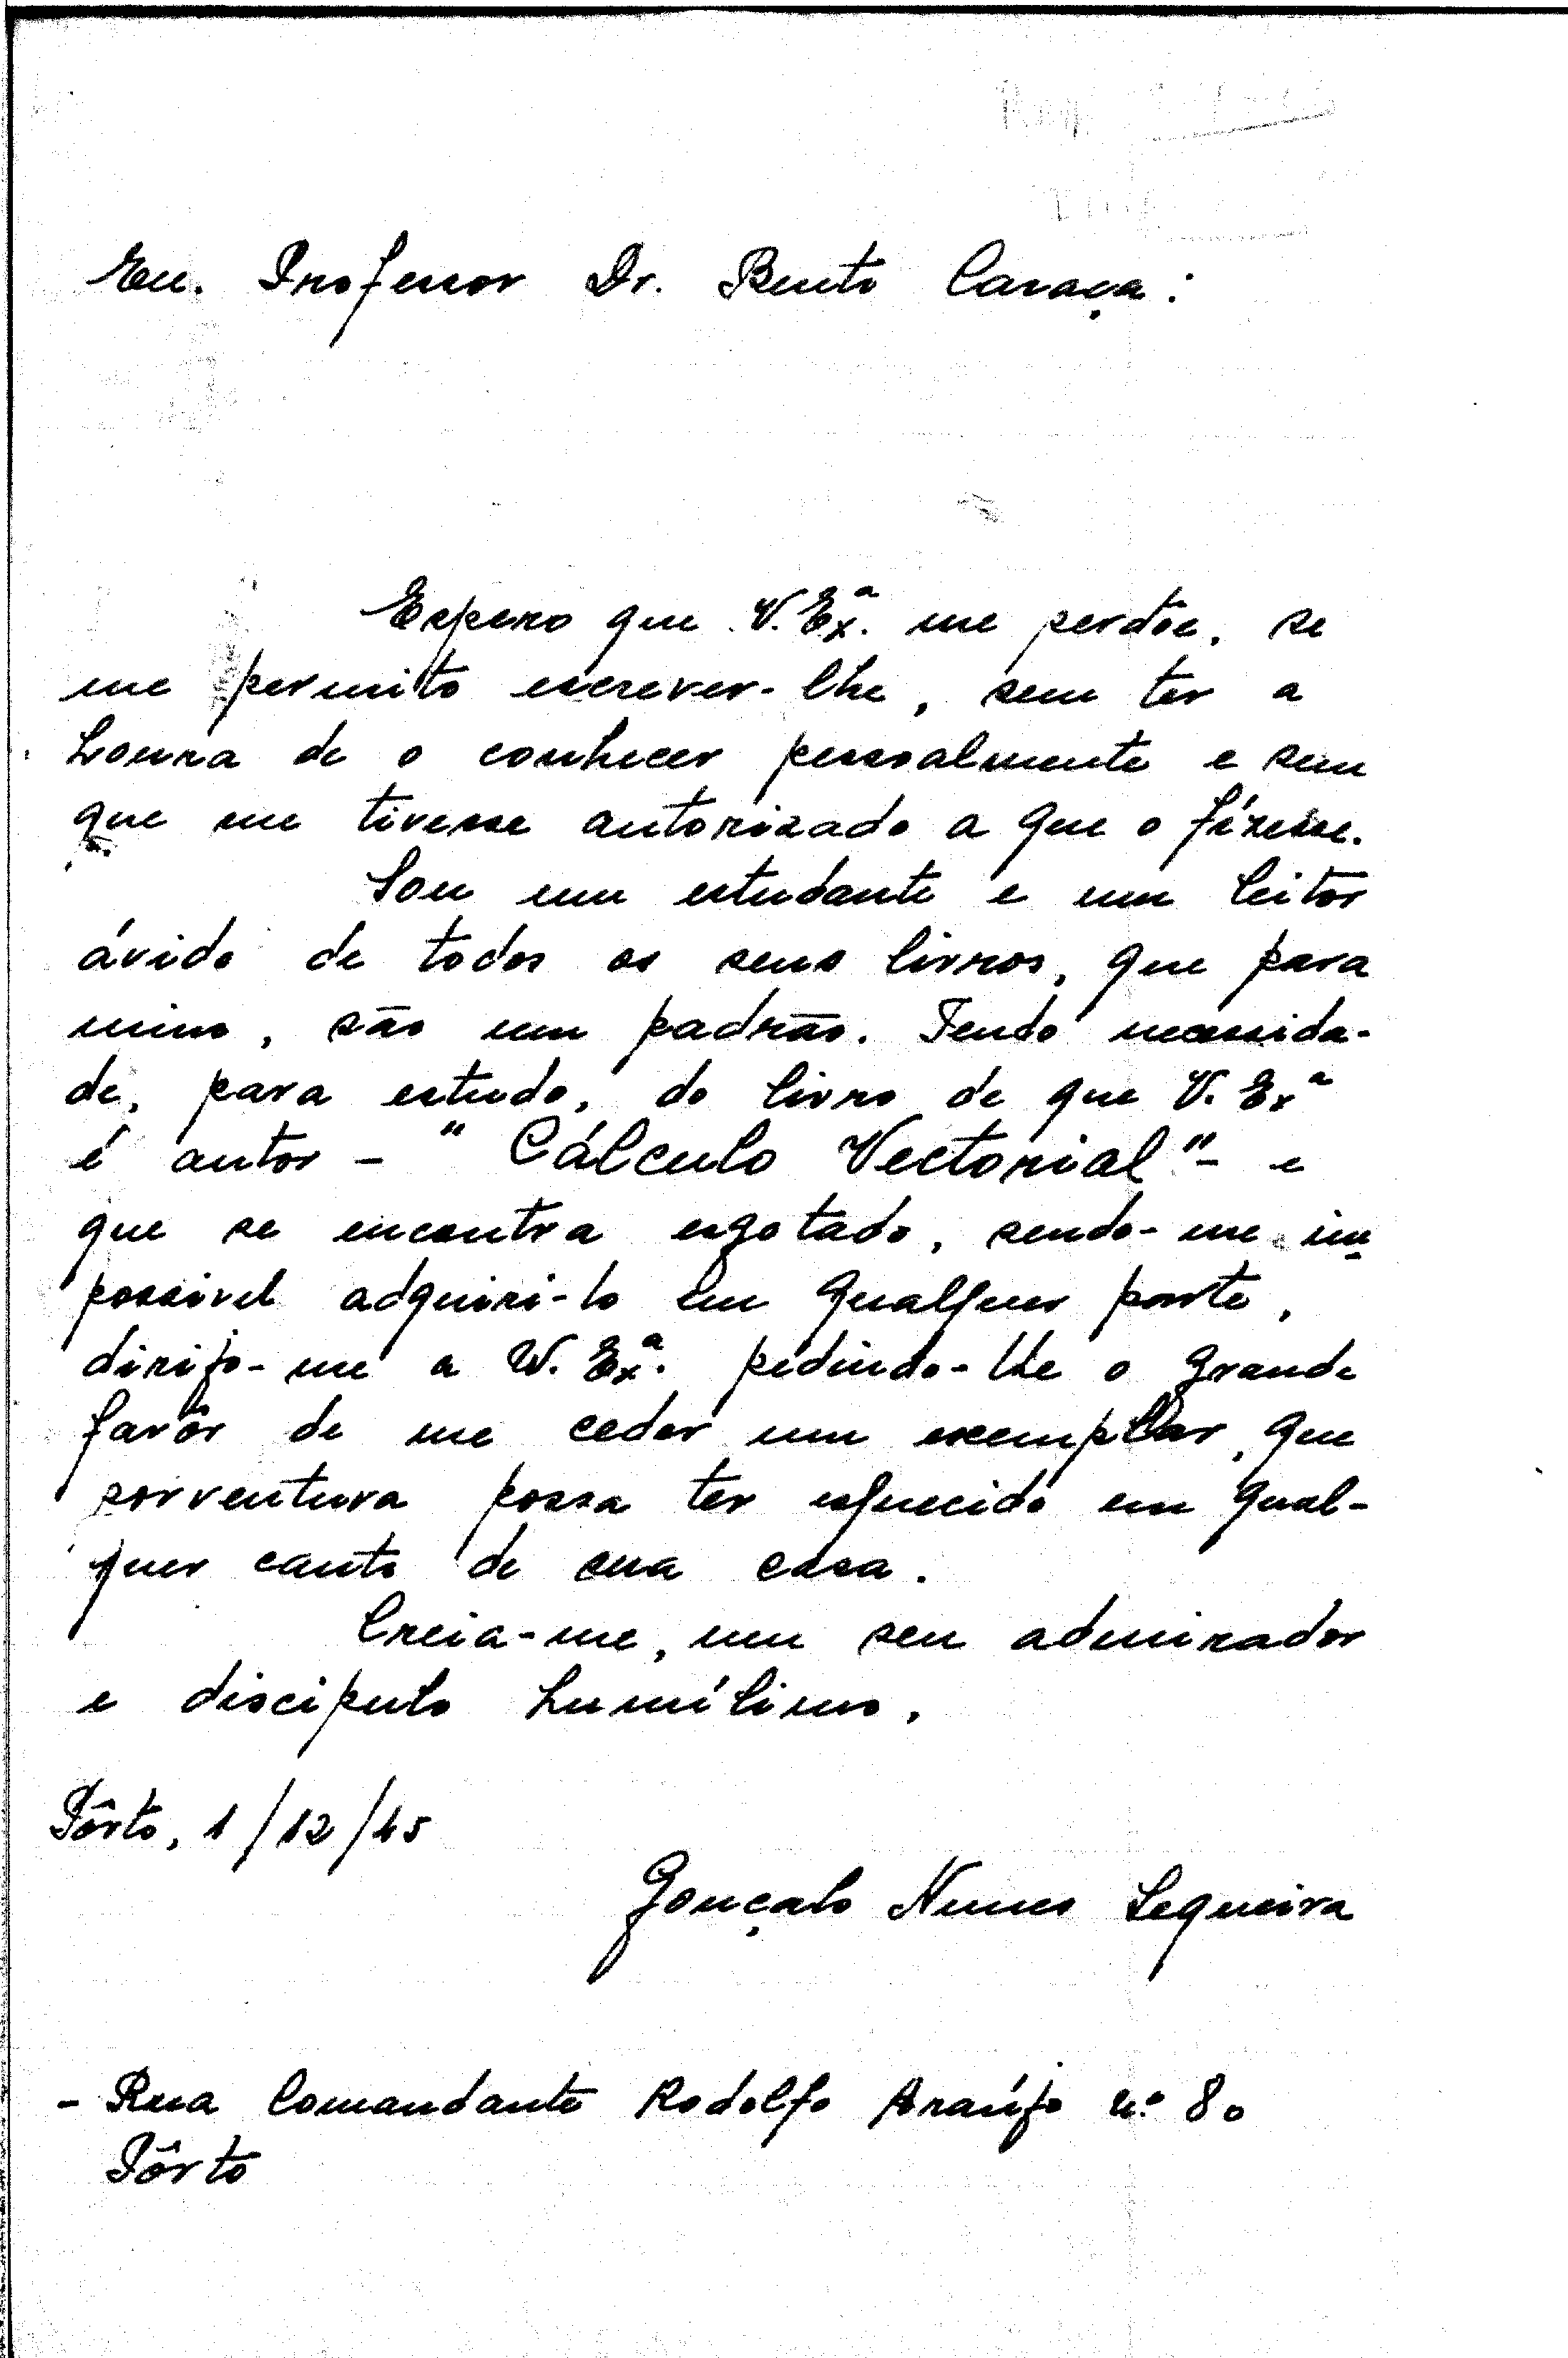 Em. Professor Dr. Bento Caraça:
Espero que V. Exª. me perdôe, se
me permito escrever-lhe, sem ter a
honra de o conhecer pessoalmente e sem
que me tivesse autorizado a que o fizesse.
Sou um estudante e um leitor
ávido de todos os seus livros, que para
mim, são um padrão. Tendo necessida-
de, para estudo, do livro de que V. Exª
é autor - "Cálculo Vectorial" - e
que se encontra esgotado, sendo-me im
possivel adquiri-lo em qualquer parte,
dirijo-me a V. Exª. pedindo-lhe o grande
favôr de me ceder um exemplar, que
porventura possa ter esquecido em qual-
quer canto de sua casa.
Creia-me, um seu admirador
e discipulo humílimo,
Pôrto, 1/12/45
Gonçalo Nunes Sequeira
- Rua Comandante Rodolfo Araújo n.º 80
Pôrto